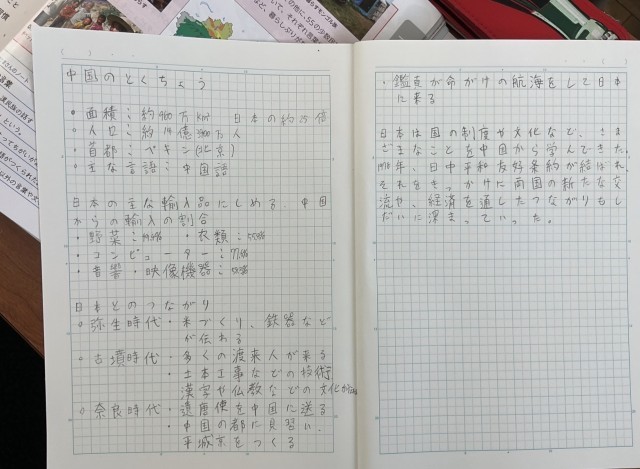 中国のとくちょう
○面積：約960万km² 日本の約25倍
○人口：約14億 万人
○首都：ペキン(北京)
○主な言語：中国語
日本の主な輸入品にしめる、中国
からの輸入の割合
・野菜： ・衣類：
・コンピューター：
・音響・映像機器：
日本とのつながり
○弥生時代・米づくり、鉄器など
が伝わる
○古墳時代・多くの渡来人が来る
・土木工事などの技術
漢字や仏教などの文化が
○奈良時代・遣唐使を中国に送る
・中国の都に見習い、
平城京をつくる
・鑑真が命がけの航海をして日本
に来る
日本は国の制度や文化など、さま
ざまなことを中国から学んできた。
1978年、日中平和友好条約が結ばれ、
それをきっかけに両国の新たな交
流や、経済を通したつながりもし
だいに深まっていった。